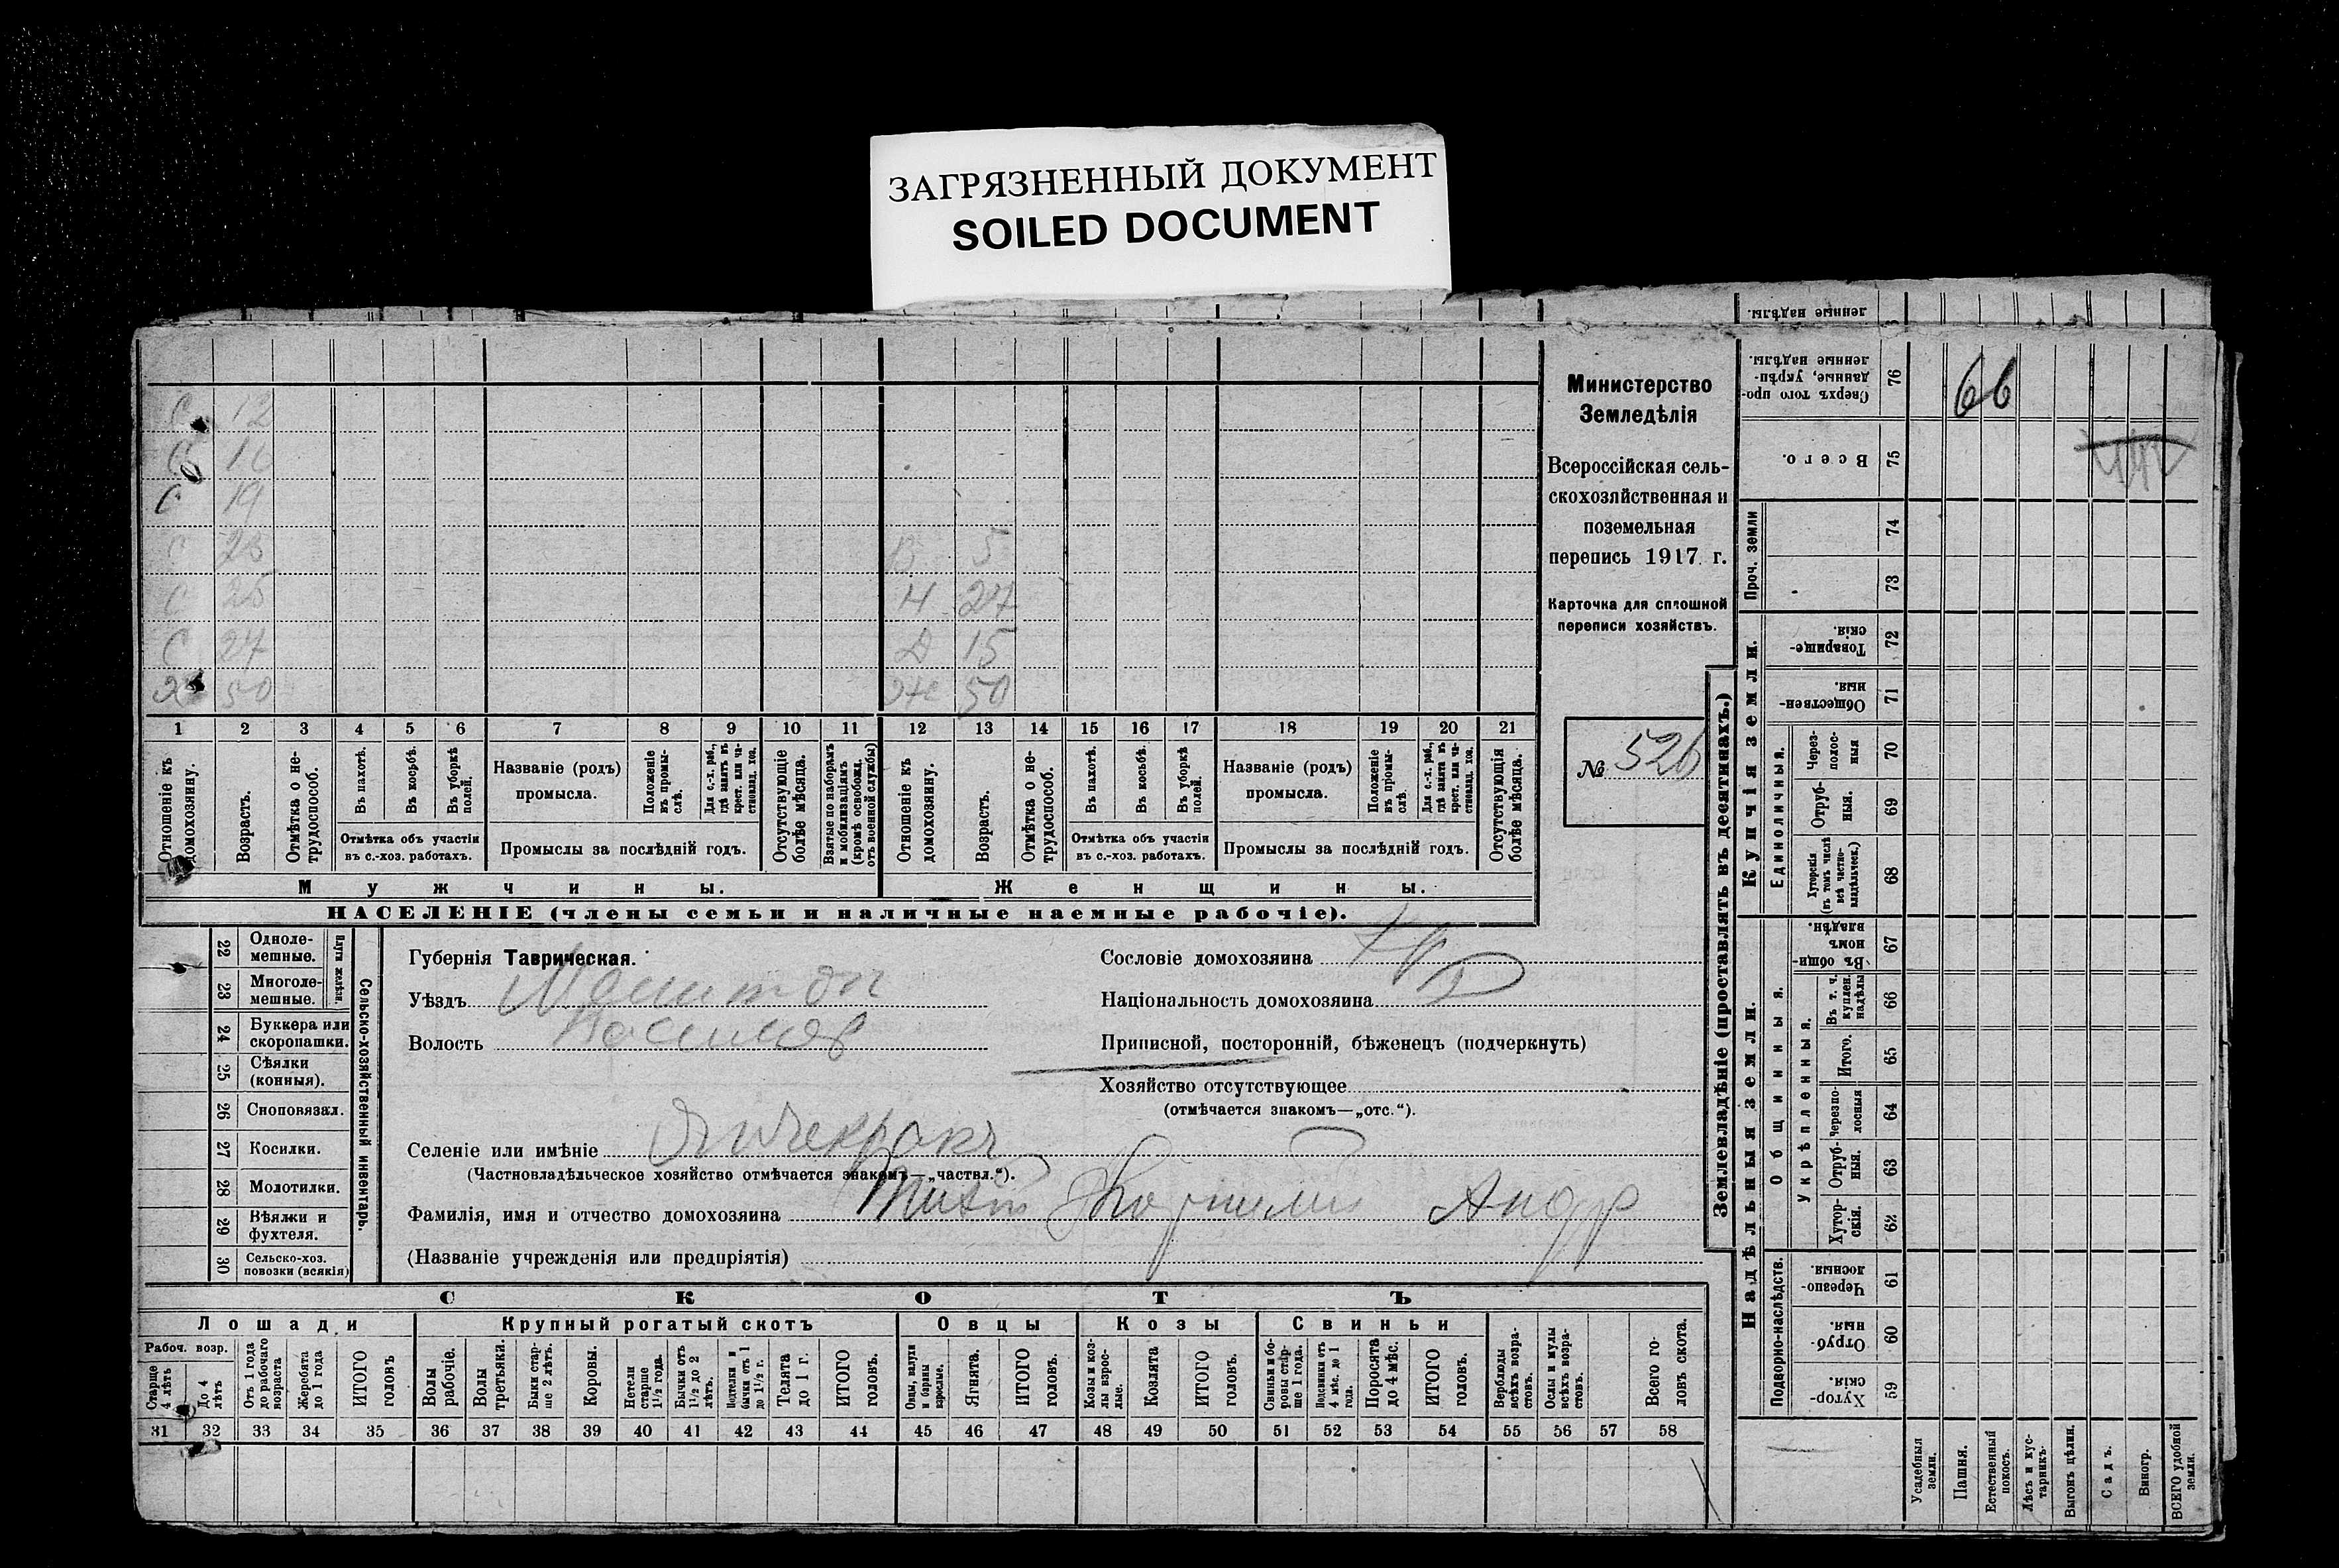 ЗАГРЯЗНЕННЫЙ ДОКУМЕНТ
SOILED DOCUMENT
С 12
С 16
С 19
С 23 5
С 25 Н 27
С 27 Д 15
Х 50 Же 50
1 2 3 4 5 6 7 8 9 10 11 12 13 14 15 16 17 18 19 20 21
Отношеніе къ домохозяину.
Возрастъ.
Отмѣтка о нетрудоспособ.
Въ пахотѣ.
Въ косьбѣ.
Въ уборкѣ полей.
Отмѣтка объ участіи
въ с.-хоз. работахъ.
Названіе (родъ)
промысла.
Положеніе въ промыслѣ.
Для с.-х. раб., гдѣ занятъ въ крест. или частновлад. хоз.
Промыслы за послѣдній годъ.
Отсутствующіе болѣе мѣсяца.
Взятые по наборамъ и мобилизаціямъ (кромѣ освобожд. отъ военной службы)
Отношеніе къ домохозяину.
Возрастъ.
Отмѣтка о нетрудоспособ.
Въ пахотѣ.
Въ косьбѣ.
Въ уборкѣ полей.
Отмѣтка объ участіи
въ с.-хоз. работахъ.
Названіе (родъ)
промысла.
Положеніе въ промыслѣ.
Для с.-х. раб., гдѣ занятъ въ крест. или частновлад. хоз.
Промыслы за послѣдній годъ.
Отсутствующія болѣе мѣсяца.
Мужчины.
Женщины.
НАСЕЛЕНІЕ (члены семьи и наличные наемные рабочіе).
Министерство
Земледѣлія
Всероссійская сель-
скохозяйственная и
поземельная
перепись 1917 г.
Карточка для сплошной
переписи хозяйствъ.
№ 526
22 Однолемешные.
23 Многолемешные.
Плуги желѣзн.
24 Буккера или скоропашки.
25 Сѣялки (конныя).
26 Сноповязал.
27 Косилки.
28 Молотилки.
29 Вѣялки и фухтеля.
30 Сельско-хоз. повозки (всякія)
Сельско-хозяйственный инвентарь.
Губернія Таврическая.
Уѣздъ Мелитоп
Волость
Селеніе или имѣніе
(Частновладѣльческое хозяйство отмѣчается знакомъ—„частвл.“).
Фамилія, имя и отчество домохозяина Андр
(Названіе учрежденія или предпріятія)
Сословіе домохозяина Кр
Національность домохозяина
Приписной, посторонній, бѣженецъ (подчеркнуть)
Хозяйство отсутствующее
(отмѣчается знакомъ—„отс.“).
СКОТЪ
Лошади
Крупный рогатый скотъ
Овцы
Козы
Свиньи
Рабоч. возр.
Старше 4 лѣтъ
До 4 лѣтъ
Отъ 1 года до рабочаго возраста
Жеребята до 1 года
ИТОГО головъ
Волы рабочіе.
Волы третьяки.
Быки старше 2 лѣтъ.
Коровы.
Нетели старше 1½ года.
Бычки отъ 1½ до 2 лѣтъ.
Подтелки и бычки отъ 1 до 1½ г.
Телята до 1 г.
ИТОГО головъ.
Овцы, валухи и бараны взрослые.
Ягнята.
ИТОГО головъ.
Козы и козлы взрослые.
Козлята
ИТОГО головъ.
Свиньи и боровы старше 1 года.
Подсвинки отъ 4 мѣс. до 1 года.
Поросята до 4 мѣс.
ИТОГО головъ.
Верблюды всѣхъ возрастовъ.
Ослы и мулы всѣхъ возрастовъ.
Всего головъ скота.
31 32 33 34 35 36 37 38 39 40 41 42 43 44 45 46 47 48 49 50 51 52 53 54 55 56 57 58
Землевладѣніе (проставлять въ десятинахъ.)
Надѣльныя земли.
Купчія земли.
Проч. земли
Подворно-наслѣдств.
Общинныя.
Укрѣпленныя.
Единоличныя.
ленные надѣлы.
Сверхъ того проданные, укрѣпленные надѣлы. 76 66
Всего. 75
74
73
Товарищескія. 72
Общественныя. 71
Черезполосныя 70
Отрубныя. 69
Хуторскія (въ томъ числѣ всѣ частновладѣльческ.) 68
Въ общинномъ владѣн. 67
Въ т. ч. куплен. надѣлы 66
Итого. 65
Черезполосныя 64
Отрубныя. 63
Хуторскія. 62
Черезполосныя. 61
Отрубныя. 60
Хуторскія. 59
Усадебныя земли.
Пашня.
Естественный покосъ.
Лѣсъ и кустарникъ.
Выгонъ цѣлин.
Садъ.
Виногр.
ВСЕГО удобной земли.